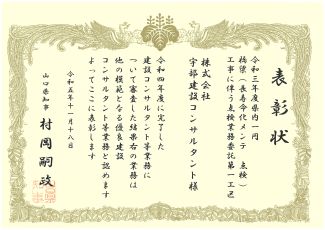 表彰状
令和三年度県内一円
橋梁(長寿命化メンテ 点検)
工事に伴う点検業務委託第一工区
株式会社
宇部建設コンサルタント様
令和四年度に完了した
建設コンサルタント等業務に
ついて審査した結果右の業務は
他の模範となる優良建設
コンサルタント等業務と認めます
よってここに表彰します
令和五年十一月十八日
山口県知事 村岡嗣政